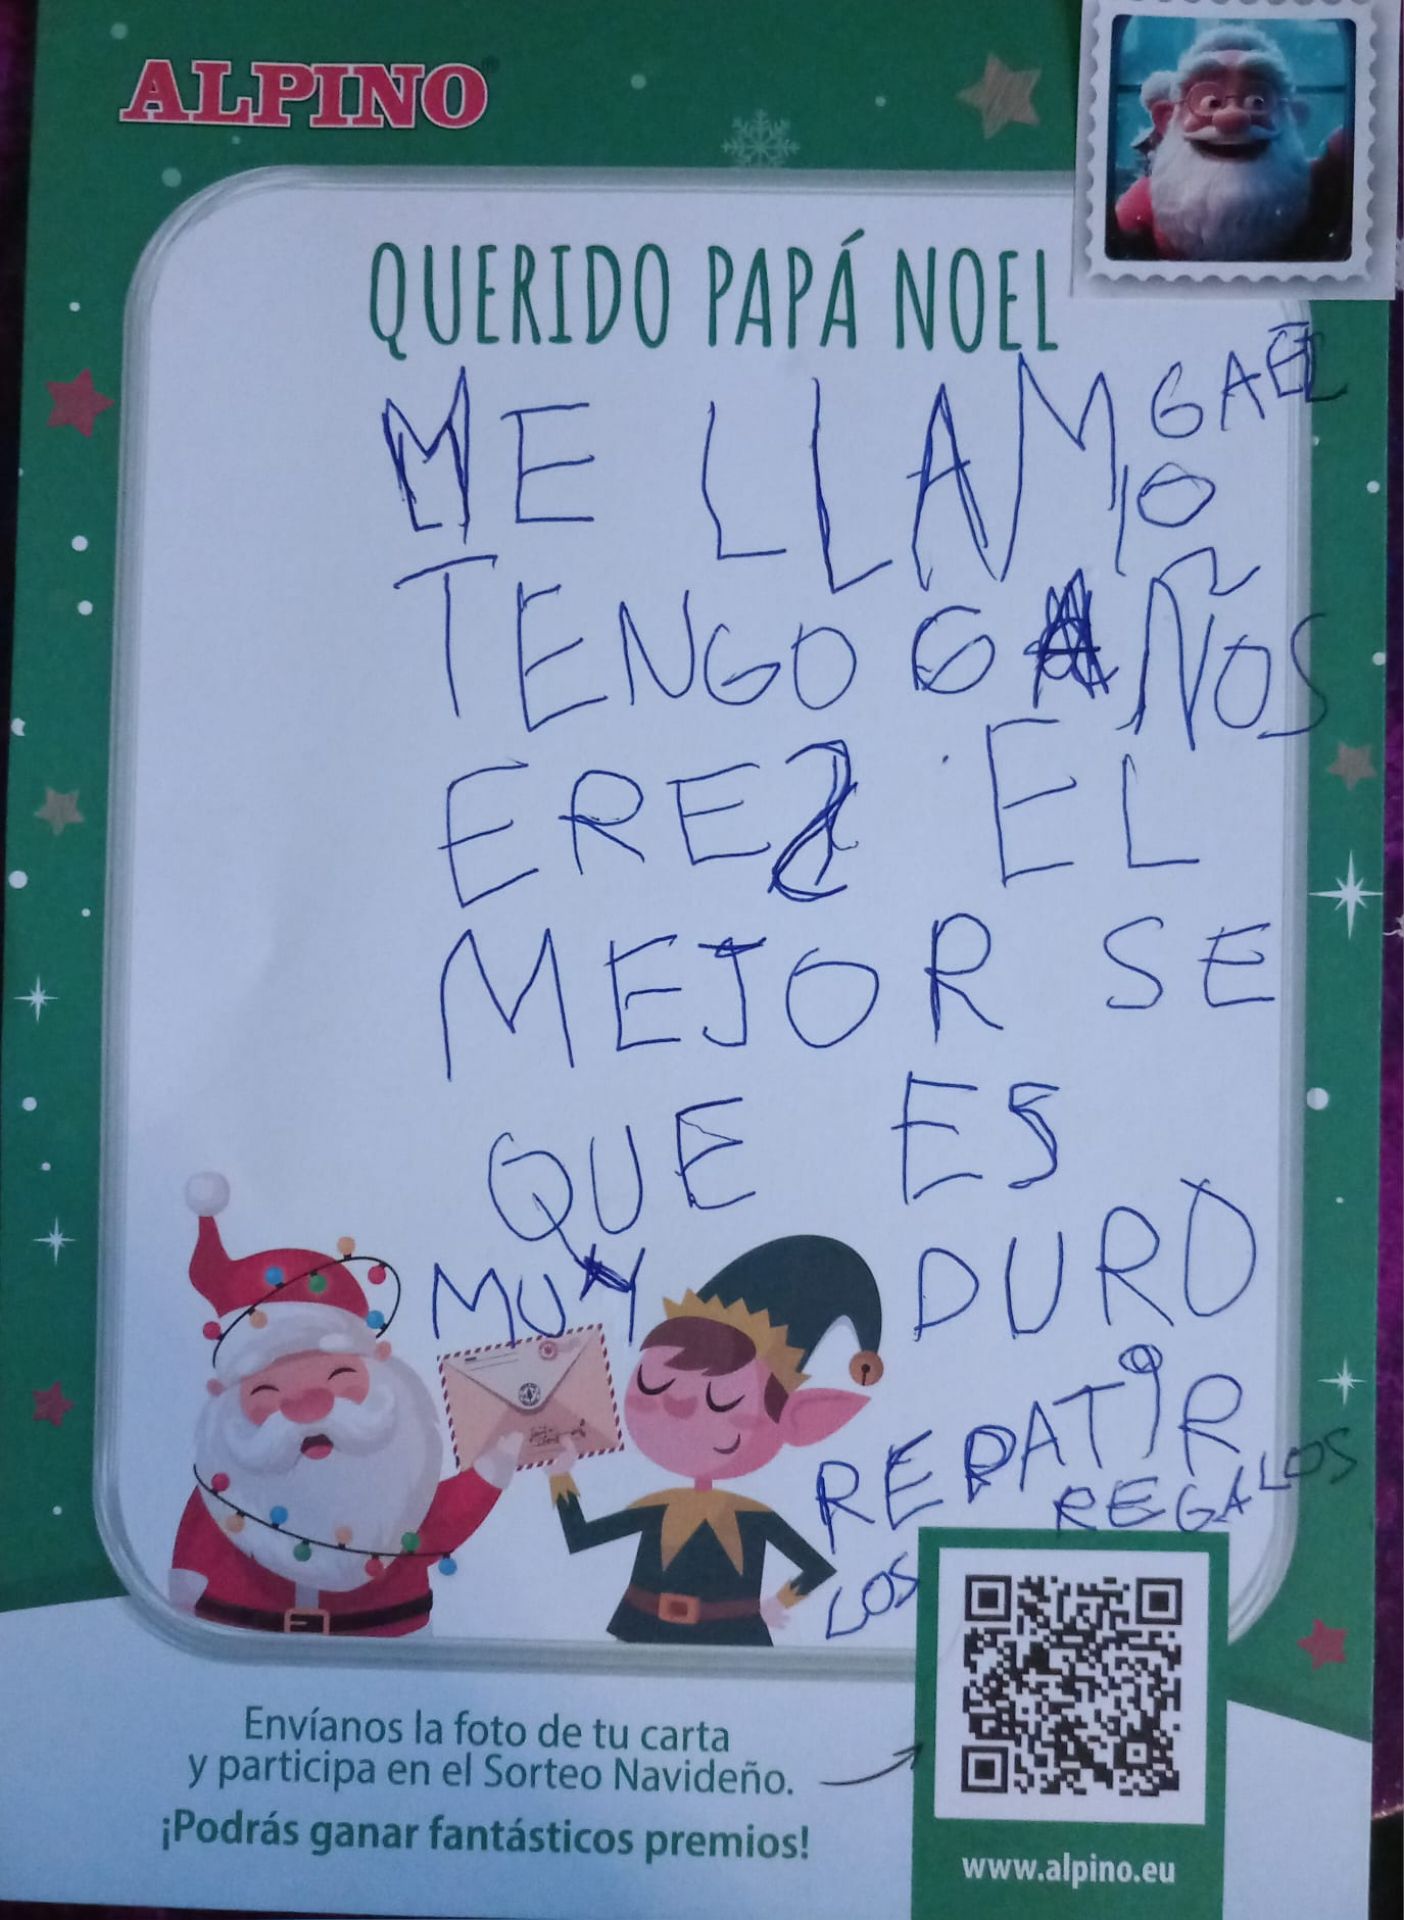 ALPINO
QUERIDO PAPÁ NOEL
ME LLAMO GAEL
TENGO 6 AÑOS
ERES EL
MEJOR SE
QUE ES
MUY DURO
REPATIR
LOS REGALOS
Envíanos la foto de tu carta
y participa en el Sorteo Navideño.
¡Podrás ganar fantásticos premios!
www.alpino.eu